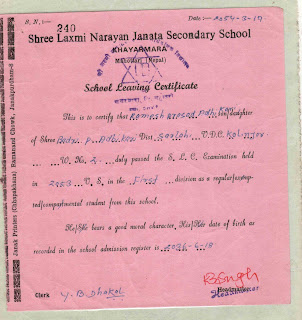 R. N. :- 240
Date :- 2054-3-17
Shree Laxmi Narayan Janata Secondary School
KHAYARMARA
Mahottari (Nepal)
School Leaving Certificate
This is to certify that Kamesh Prasad Adhikari son/daughter
of Shree Badri P. Adhikari Dist. Sarlahi V.D.C.
W. N. 2 duly passed the S. L. C. Examination held
in 2053 V. S. in the First division as a regular/exemp-
ted/compartmental student from this school.
He/She bears a good moral character. His/Her date of birth as
recorded in the school admission register is
Y. B. Dhakal
Clerk
Headmaster
Headmaster
Janak Printers (Chhapakhana) Ramanand Chowk, Janakpurdham-8